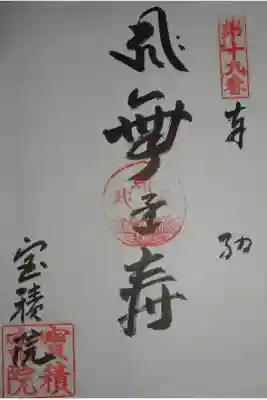 第十九番
奉納
無量壽
宝積院
寳積
院